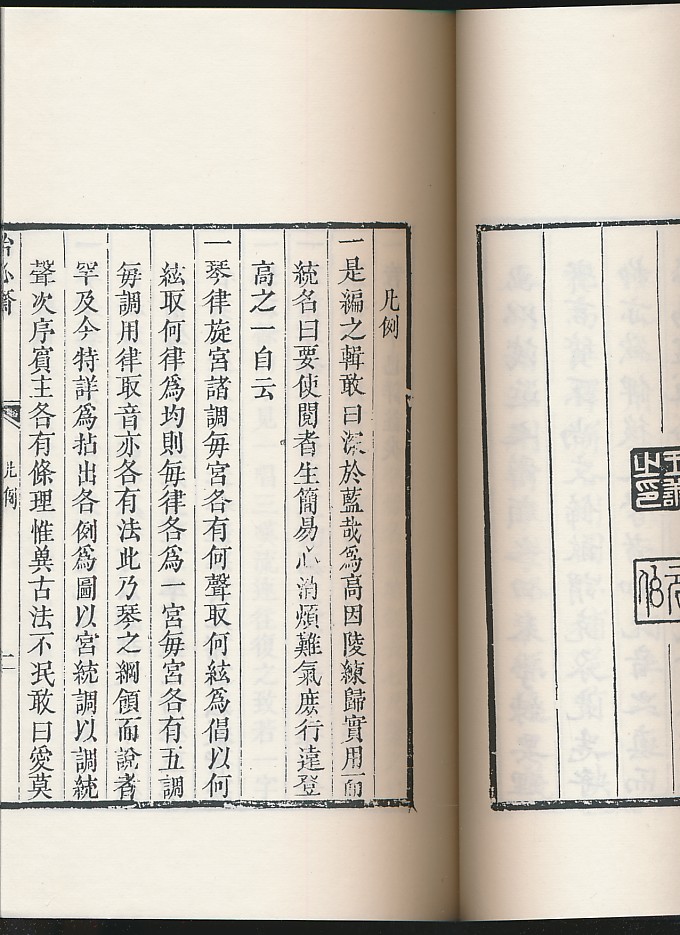 凡例
一是編之輯敢曰深於藍哉爲高因陵練歸實用而
統名曰要使閱者生簡易心消煩難氣庶行遠登
高之一自云
一琴律旋宮諸調毎宮各有何聲取何絃爲倡以何
絃取何律爲均則毎律各爲一宮毎宮各有五調
毎調用律取音亦各有法此乃琴之綱領而說者
罕及今特詳爲拈出各例爲圖以宮統調以調統
聲次序賓主各有條理惟兾古法不泯敢曰愛莫
治心齋 凡例 一